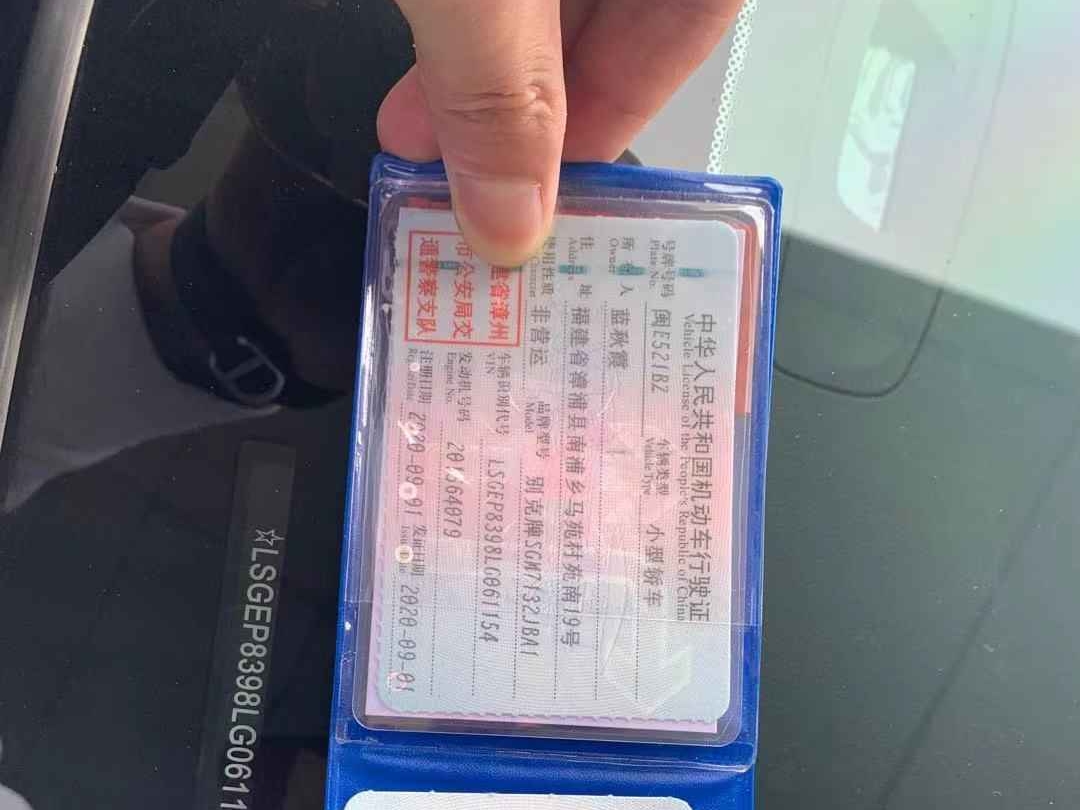 中华人民共和国机动车行驶证
Vehicle License of the People's Republic of China
号牌号码 闽E521BZ 车辆类型 小型轿车
Plate No. Vehicle Type
所有人 蓝秋霞
Owner
住址 福建省漳浦县南浦乡马苑村苑南19号
Address
使用性质 非营运 品牌型号 别克牌SGM7132JBA1
Character Model
省漳州 车辆识别代号 LSGEP8398LG061154
VIN
市公安局交 发动机号码 201664079
Engine No.
通警察支队 注册日期 2020-09-01 发证日期 2020-09-01
☆LSGEP8398LG0611